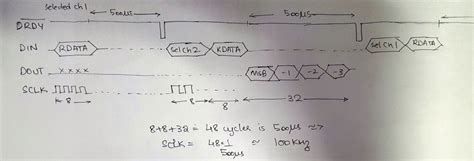 selected ch1
500µs 500µs
DRDY
DIN RDATA Selch2 RDATA Selch1 RDATA
DOUT x x x x MSB -1 -2 -3
SCLK
8 8 8 32
8+8+32 = 48 cycles is 500µs =>
Sclk = 48*1 ≈ 100KHz
500µs